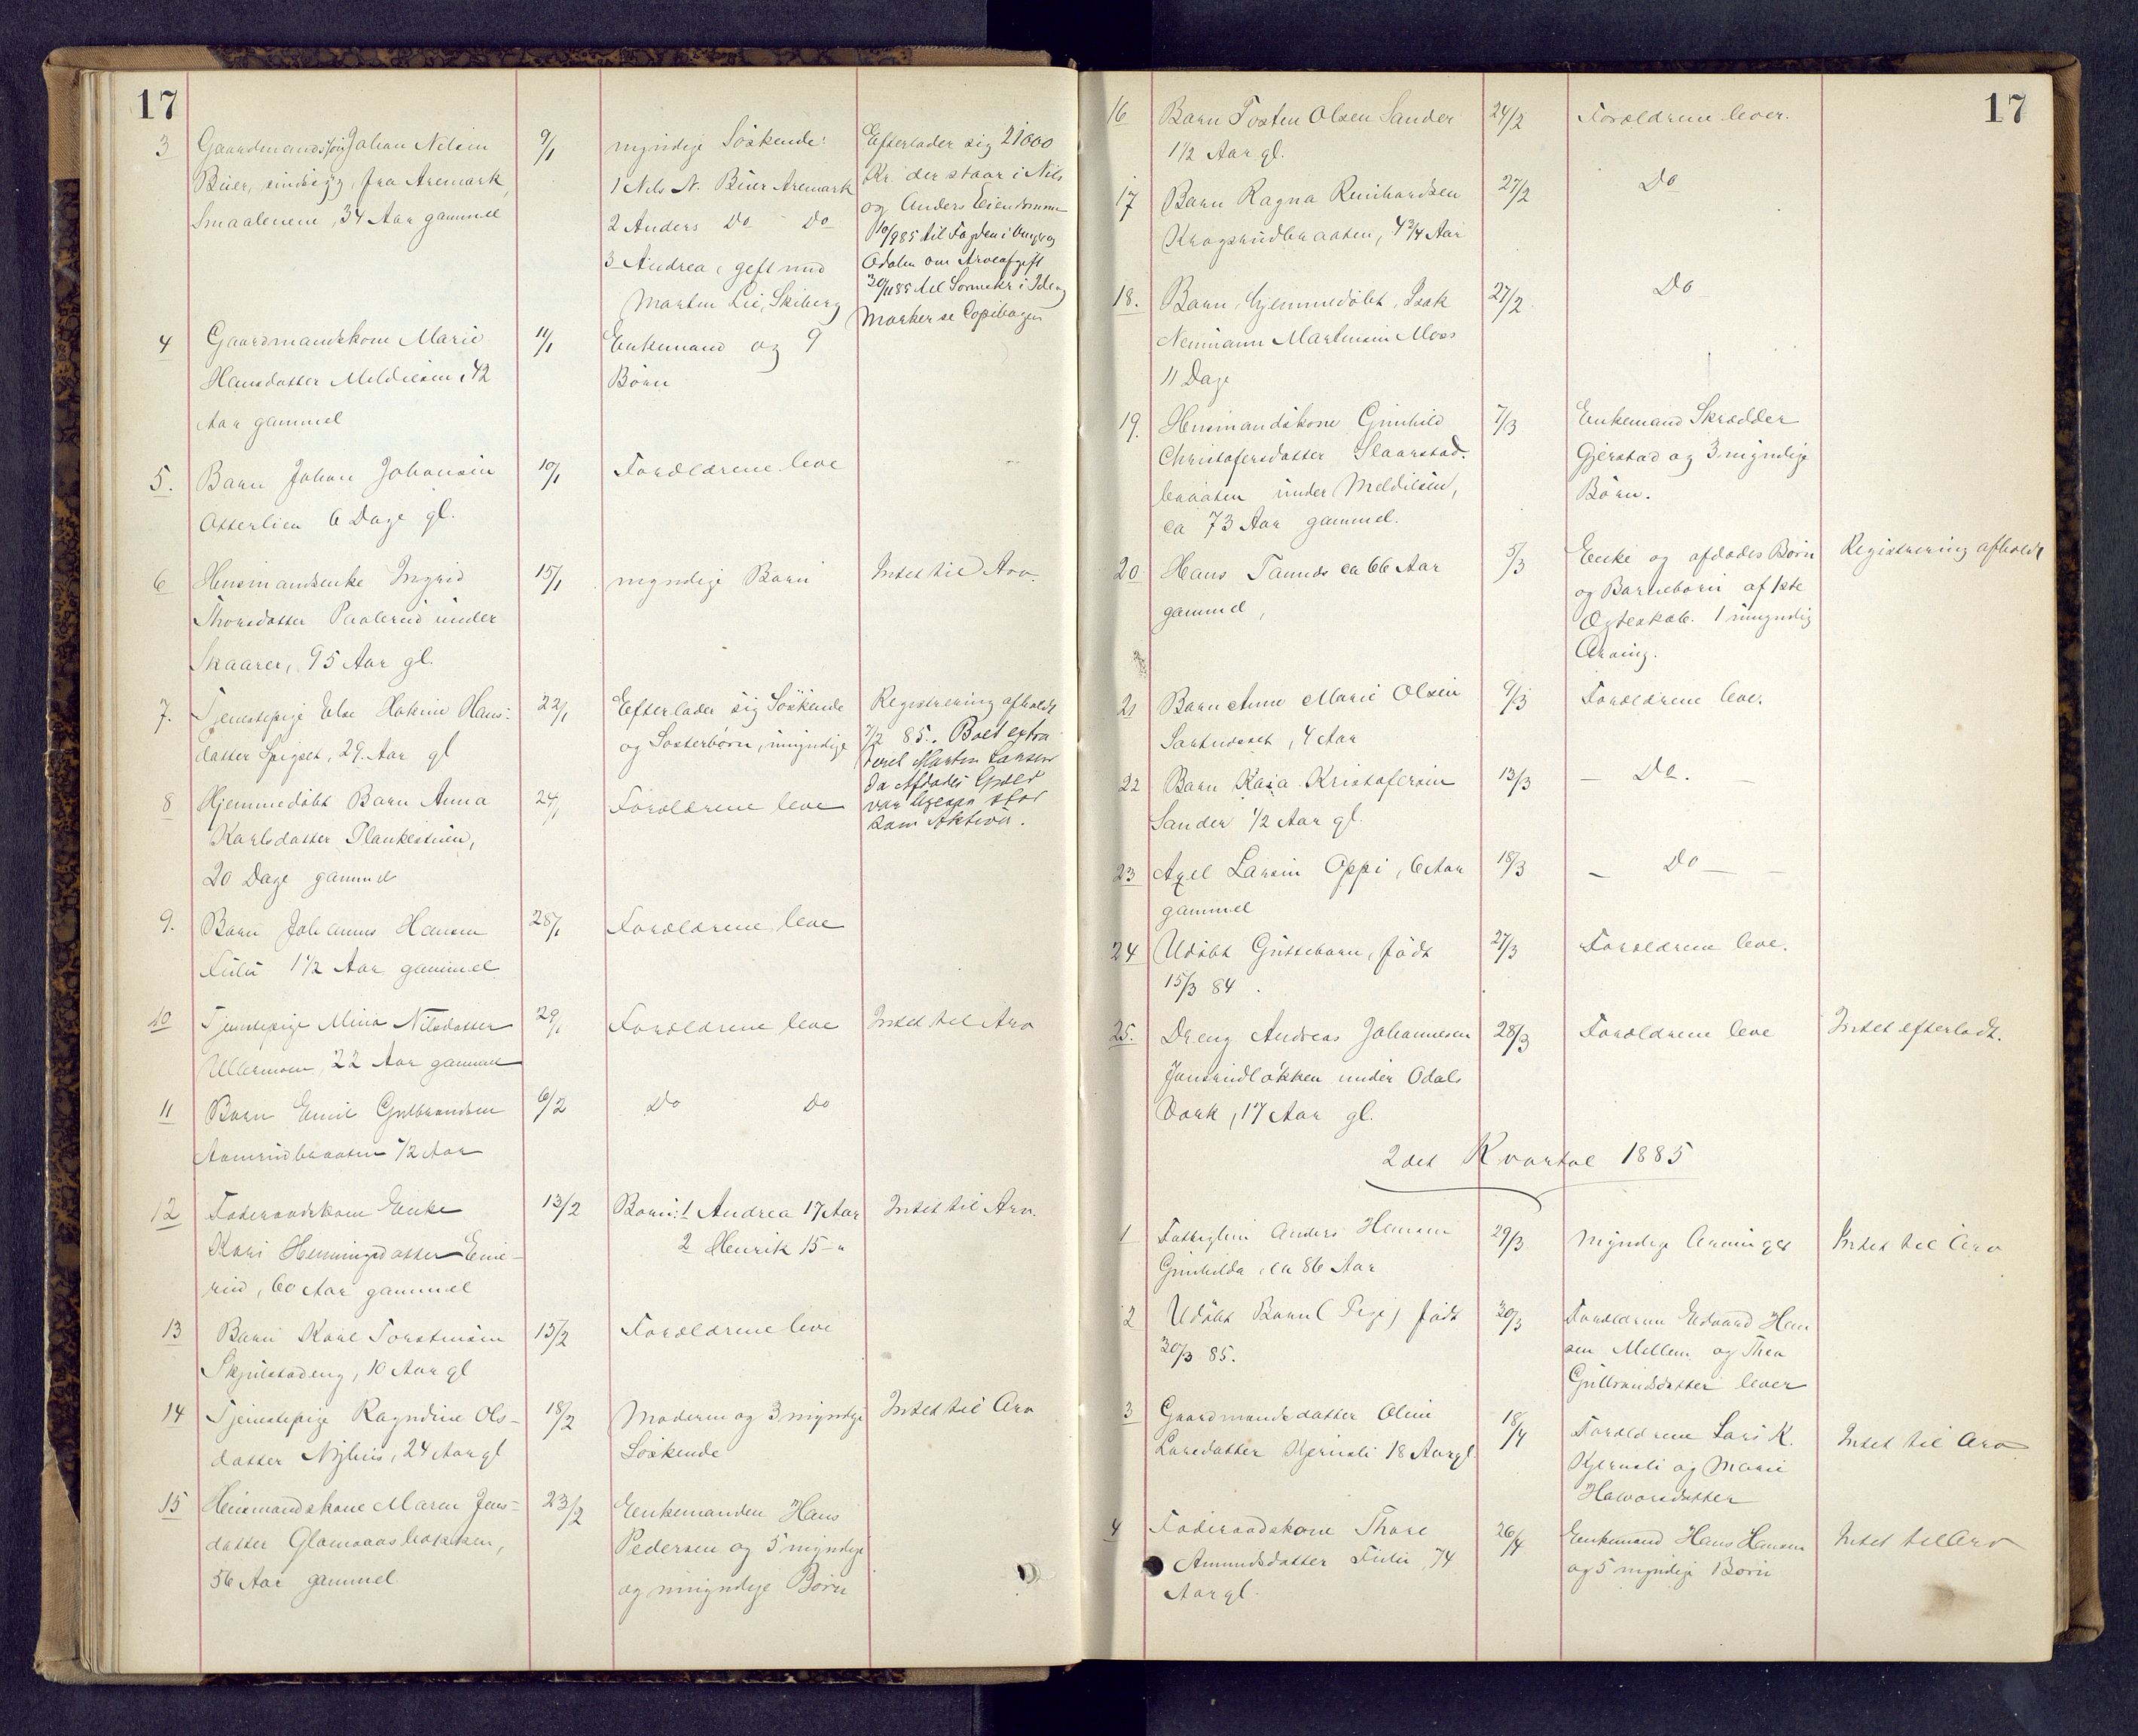 17
3 Gaardmandssøn Johan Nilsen 9/1 myndige Söskende: Efterlader sig 21000
Büer, sindssyg, fra Aremark, 1 Nils N. Büer Aremark Kr. der staar i Nils
Smaalenene, 34 Aar gammel 2 Anders Do Do og Anders Eiendomme
10/9 85 til Fogden i
3 Andrea, gift med Odalen om Arveafgift
30/11 85 til Sorenskr i Ide og
Marten Lie, Skiberg Marker se Copibogen
4 Gaardmandskone Marie 11/1 Enkemand og 9
Hansdatter Meldieseim, 42 Börn
Aar gammel
5. Barn Johan Johansen 10/1 Forældrene leve
Otterlien 6 Dage gl.
6 Husmandsenke Ingrid 15/1 myndige Barn Intet til Arv.
Thorsdatter Paalerud under
Skaarer, 95 Aar gl.
7. Tjenestepige Else Katrine Hans- 22/1 Efterlader sig Söskende Registrering afholdt
datter Spigset, 29. Aar gl og Søsterbörn, umyndige 7/2 85. Boet extra
Martin Larsen
da Afdødes Gjæld
8 Hjemmedöbt Barn Anna 24/1 Forældrene leve var ligesaa stor
Karlsdatter Plankestuen, som Aktiva.
20 Dage gammel
9. Barn Johannes Hansen 28/1 Forældrene leve
Fulu 1 1/2 Aar gammel
10 Tjenestepige Mina Nilsdatter 29/1 Forældrene leve Intet til Arv
Ullermoen, 22 Aar gammel
11 Barn Emil Gulbrandsen 6/2 Do Do
Aamrudbraaten 1/2 Aar
12 Föderaadskone Enke 13/2 Barn: 1 Andrea 17 Aar Intet til Arv.
Kari Henningsdatter Enie- 2 Henrik 15 - "
rud, 60 Aar gammel
13 Barn Karl Torstensen 15/2 Forældrene leve
Skjulstadeng, 10 Aar gl
14 Tjenestepige Ragndine Ols- 18/2 Moderen og 3 myndige Intet til Arv
datter Nyhus, 24 Aar gl Söskende
15 Husmandskone Maren Jens- 23/2 Enkemanden Hans
datter Glomaasbakken, Pedersen og 5 myndige
56 Aar gammel og umyndige Börn
17
16 Barn Tosten Olsen Sander 24/2 Forældrene lever.
1 1/2 Aar gl.
17 Barn Ragna Reinhardsen 27/2 Do
Krogsrudbraaten, 4 3/4 Aar
18. Barn, hjemmedöbt, Isak 27/2 Do
Neumann Martensen Moss
11 Dage
19. Husmandskone Gunhild 7/3 Enkemand Skrædder
Christofersdatter Slaarstad- Gjerstad og 3 myndige
braaten under Meldiseim, Börn.
ca 73 Aar gammel.
20 Hans Tannæs ca 66 Aar 5/3 Enke og afdødes Börn Registrering afholdt
gammel, og Barnebarn af 1ste
Ægteskab. 1 umyndig
Arving.
21 Barn Anne Marie Olsen 9/3 Forældrene leve.
Sartueset, 4 Aar
22 Barn Kaia Kristofersen 13/3 - Do. -
Sander 1/2 Aar gl.
23 Axel Larsen Oppi, 6 Aar 18/3 - Do -
gammel
24 Udöbt Guttebarn, födt 27/3 Forældrene leve.
15/3 84.
25. Dreng Andreas Johannesen 28/3 Forældrene leve Intet efterladt.
Jonsrudløkken under Odals
Værk, 17 Aar gl.
2det Kvartal 1885
1 Fattiglem Anders Hansen 29/3 Myndige Arvinger Intet til Arv
Gunhilda, ca 86 Aar
2 Udöbt Barn (Pige) födt 30/3 Forældrene Edvard Han
30/3 85. sen Mellem og Thea
Gulbrandsdatter lever
3 Gaardmandsdatter Oline 18/4 Forældrene Lars K.
Larsdatter Kjernsli 18 Aar gl. Kjernsli og Marie Intet til Arv
Havorsdatter
4 Föderaadskone Thore 26/4 Enkemand Hans Hansen Intet til Arv
Amundsdatter Fulu, 74 og 5 myndige Börn
Aar gl.